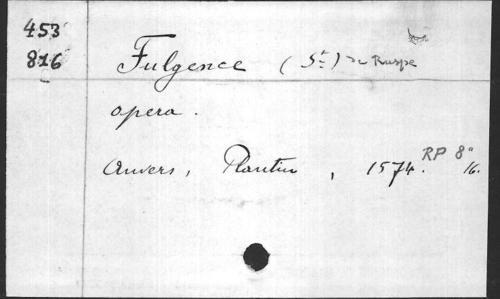 453
816
Fulgence (St) de Ruspe
opera.
Anvers, Plantin, 1574. RP 8°
16.